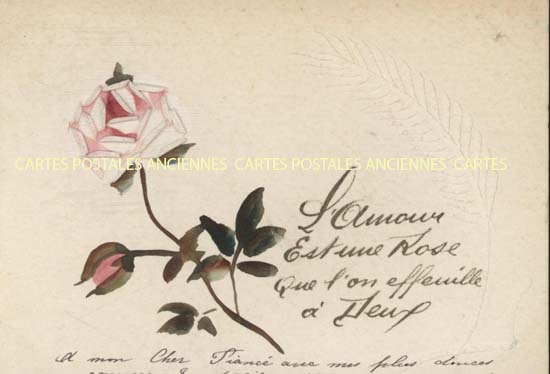 CARTES POSTALES ANCIENNES CARTES POSTALES ANCIENNES CARTES
L'Amour
Est une Rose
Que l'on effeuille
à Deux
A mon Cher Fiancé avec mes plus douces